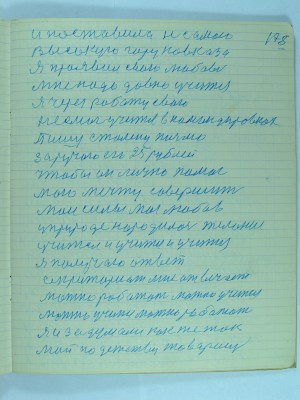 178
и поставлиа не самого
высокую гору кавказа
Я проявил свою любов
мне надо давно учится
Я через работу свою
не смог учится в командировках
Пишу сталину писмо
за ручаго его 25 рублей
чтобы он лично помог
мою мечту совершит
мои силы моя любов
у природе народилос желание
учится и учится и учится
Я получаю ответ
секретариат мне отвечает
можно работат можно учится
можно учится можно работат
Я и задумался как же так
мой по детству товарищ